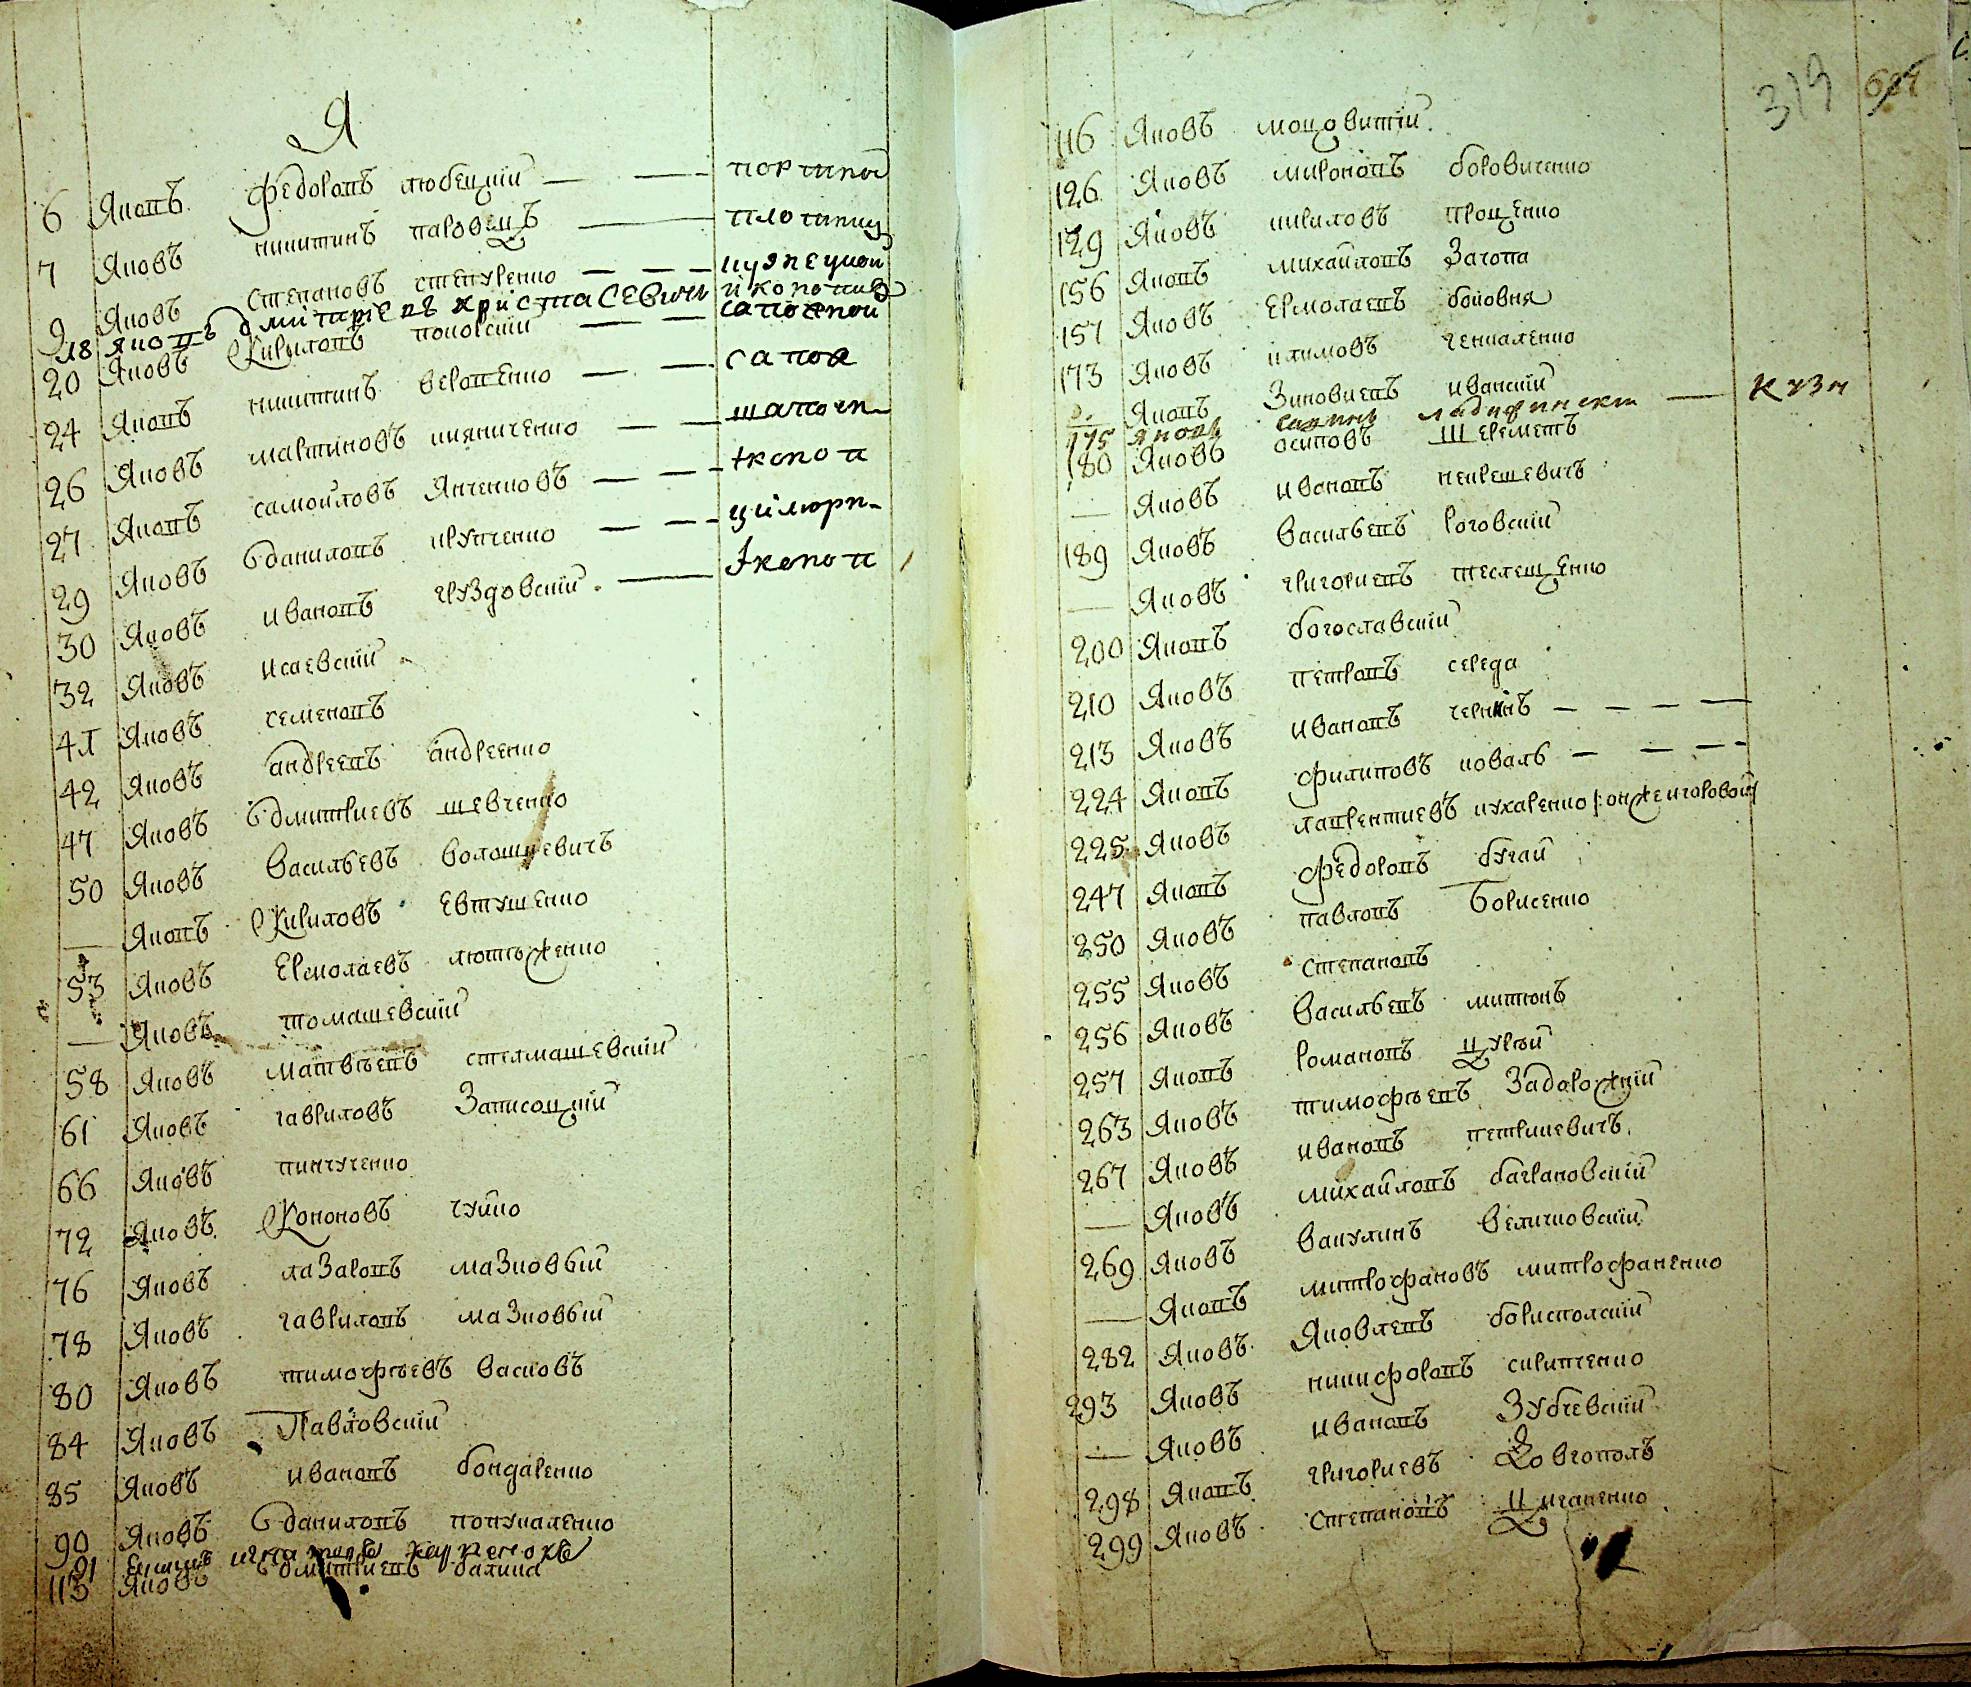 Я
6 Яковъ Федоровъ любецкій — — портной
7 Яковъ никитинъ паровецъ — плотниц
9 Яковъ Степановъ степуренко — — — кузнецкой
18 Яковъ дмитріевъ христасевичь иконопис
20 Яковъ Кириловъ поповскій — — сапожной
24 Яковъ никитинъ веропенко — — сапож
26 Яковъ мартиновъ кияниченко — — шапочн
27 Яковъ самойловъ Янченковъ — —
29 Яковъ даниловъ крупченко — — цилюрн
30 Яковъ ивановъ груздовскій —
32 Яковъ исаевскій
41 Яковъ семеновъ
42 Яковъ андреевъ андреенко
47 Яковъ дмитриевъ шевченко
50 Яковъ Васильевъ волошкевичъ
— Яковъ Кириловъ Евтушенко
53 Яковъ Ермолаевъ лютъженко
— Яковъ томашевскій
58 Яковъ матвѣевъ стелмашевскій
61 Яковъ гавриловъ Записоцкій
66 Яковъ пинчученко
72 Яковъ Кононовъ чуйко
76 Яковъ лазаровъ мазковый
78 Яковъ гавриловъ мазковый
80 Яковъ тимофѣевъ васковъ
84 Яковъ Павловскій
85 Яковъ ивановъ бондаренко
90 Яковъ даниловъ попукаленко
91
113 Яковъ дмитриевъ калина
319
116 Яковъ моцовитій
126 Яковъ мироновъ боровиченко
129 Яковъ кириловъ проценко
156 Яковъ михайловъ Загопа
157 Яковъ Ермолаевъ боковня
173 Яковъ климовъ чепкаленко
Яковъ Зиновиевъ иванскій
175 Яковъ — кузн
180 Яковъ осиповъ Шереметъ
— Яковъ ивановъ некрешевичъ
189 Яковъ Васильевъ роговскій
— Яковъ григориевъ теслещенко
200 Яковъ богославскій
210 Яковъ петровъ середа
213 Яковъ ивановъ — — — —
224 Яковъ филиповъ коваль — — — —
225 Яковъ лаврентиевъ кухаренко /:онже игоровой
247 Яковъ федоровъ бугай
250 Яковъ павловъ Борисенко
255 Яковъ степановъ
256 Яковъ Васильевъ митюкъ
257 Яковъ романовъ цурый
263 Яковъ тимофѣевъ Задарожній
267 Яковъ ивановъ петрикевичъ
— Яковъ михайловъ баграновскій
269 Яковъ Вакулинъ величковскій
— Яковъ митрофановъ митрофаненко
282 Яковъ Яковлевъ бориспольскій
293 Яковъ никифоровъ скрипченко
— Яковъ ивановъ Зубчевскій
298 Яковъ григориевъ Довгополъ
299 Яковъ Степановъ Циганенко